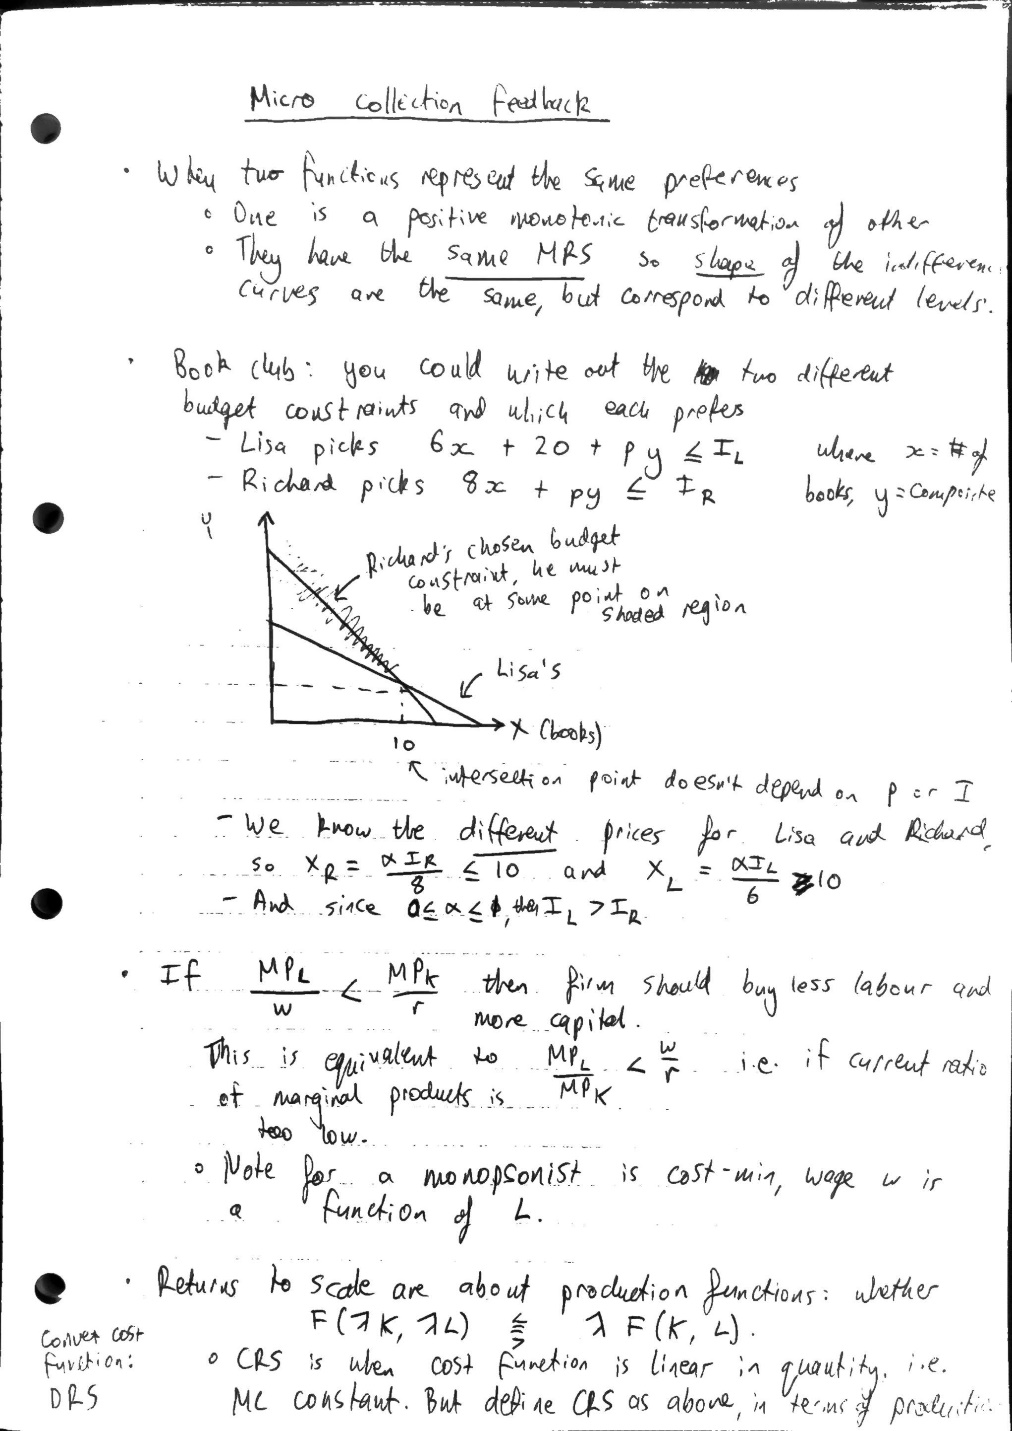 Micro Collection Feedback
• When two functions represent the same preferences
◦ One is a positive monotonic transformation of other
◦ They have the same MRS so shape of the indifferenc
curves are the same, but correspond to different levels.
• Book club: you could write out the two different
budget constraints and which each prefers
- Lisa picks 6x + 20 + py ≤ I_L where x = # of
- Richard picks 8x + py ≤ I_R books, y = composite
y
Richard's chosen budget
constraint, he must
be at some point on
shaded region
Lisa's
X (books)
10
intersection point doesn't depend on p or I
- We know the different prices for Lisa and Richard,
so X_R = αI_R/8 ≤ 10 and X_L = αI_L/6 ≥ 10
- And since 0 ≤ α ≤ 1, then I_L > I_R.
• If MP_L/w < MP_K/r then firm should buy less labour and
more capital.
This is equivalent to MP_L/MP_K < w/r i.e. if current ratio
of marginal products is
too low.
◦ Note for a monopsonist is cost-min, wage w is
a function of L.
• Returns to scale are about production functions: whether
F(λK, λL) ⋚ λ F(K, L).
Convex cost
function:
DRS
◦ CRS is when cost function is linear in quantity, i.e.
MC constant. But define CRS as above, in terms of